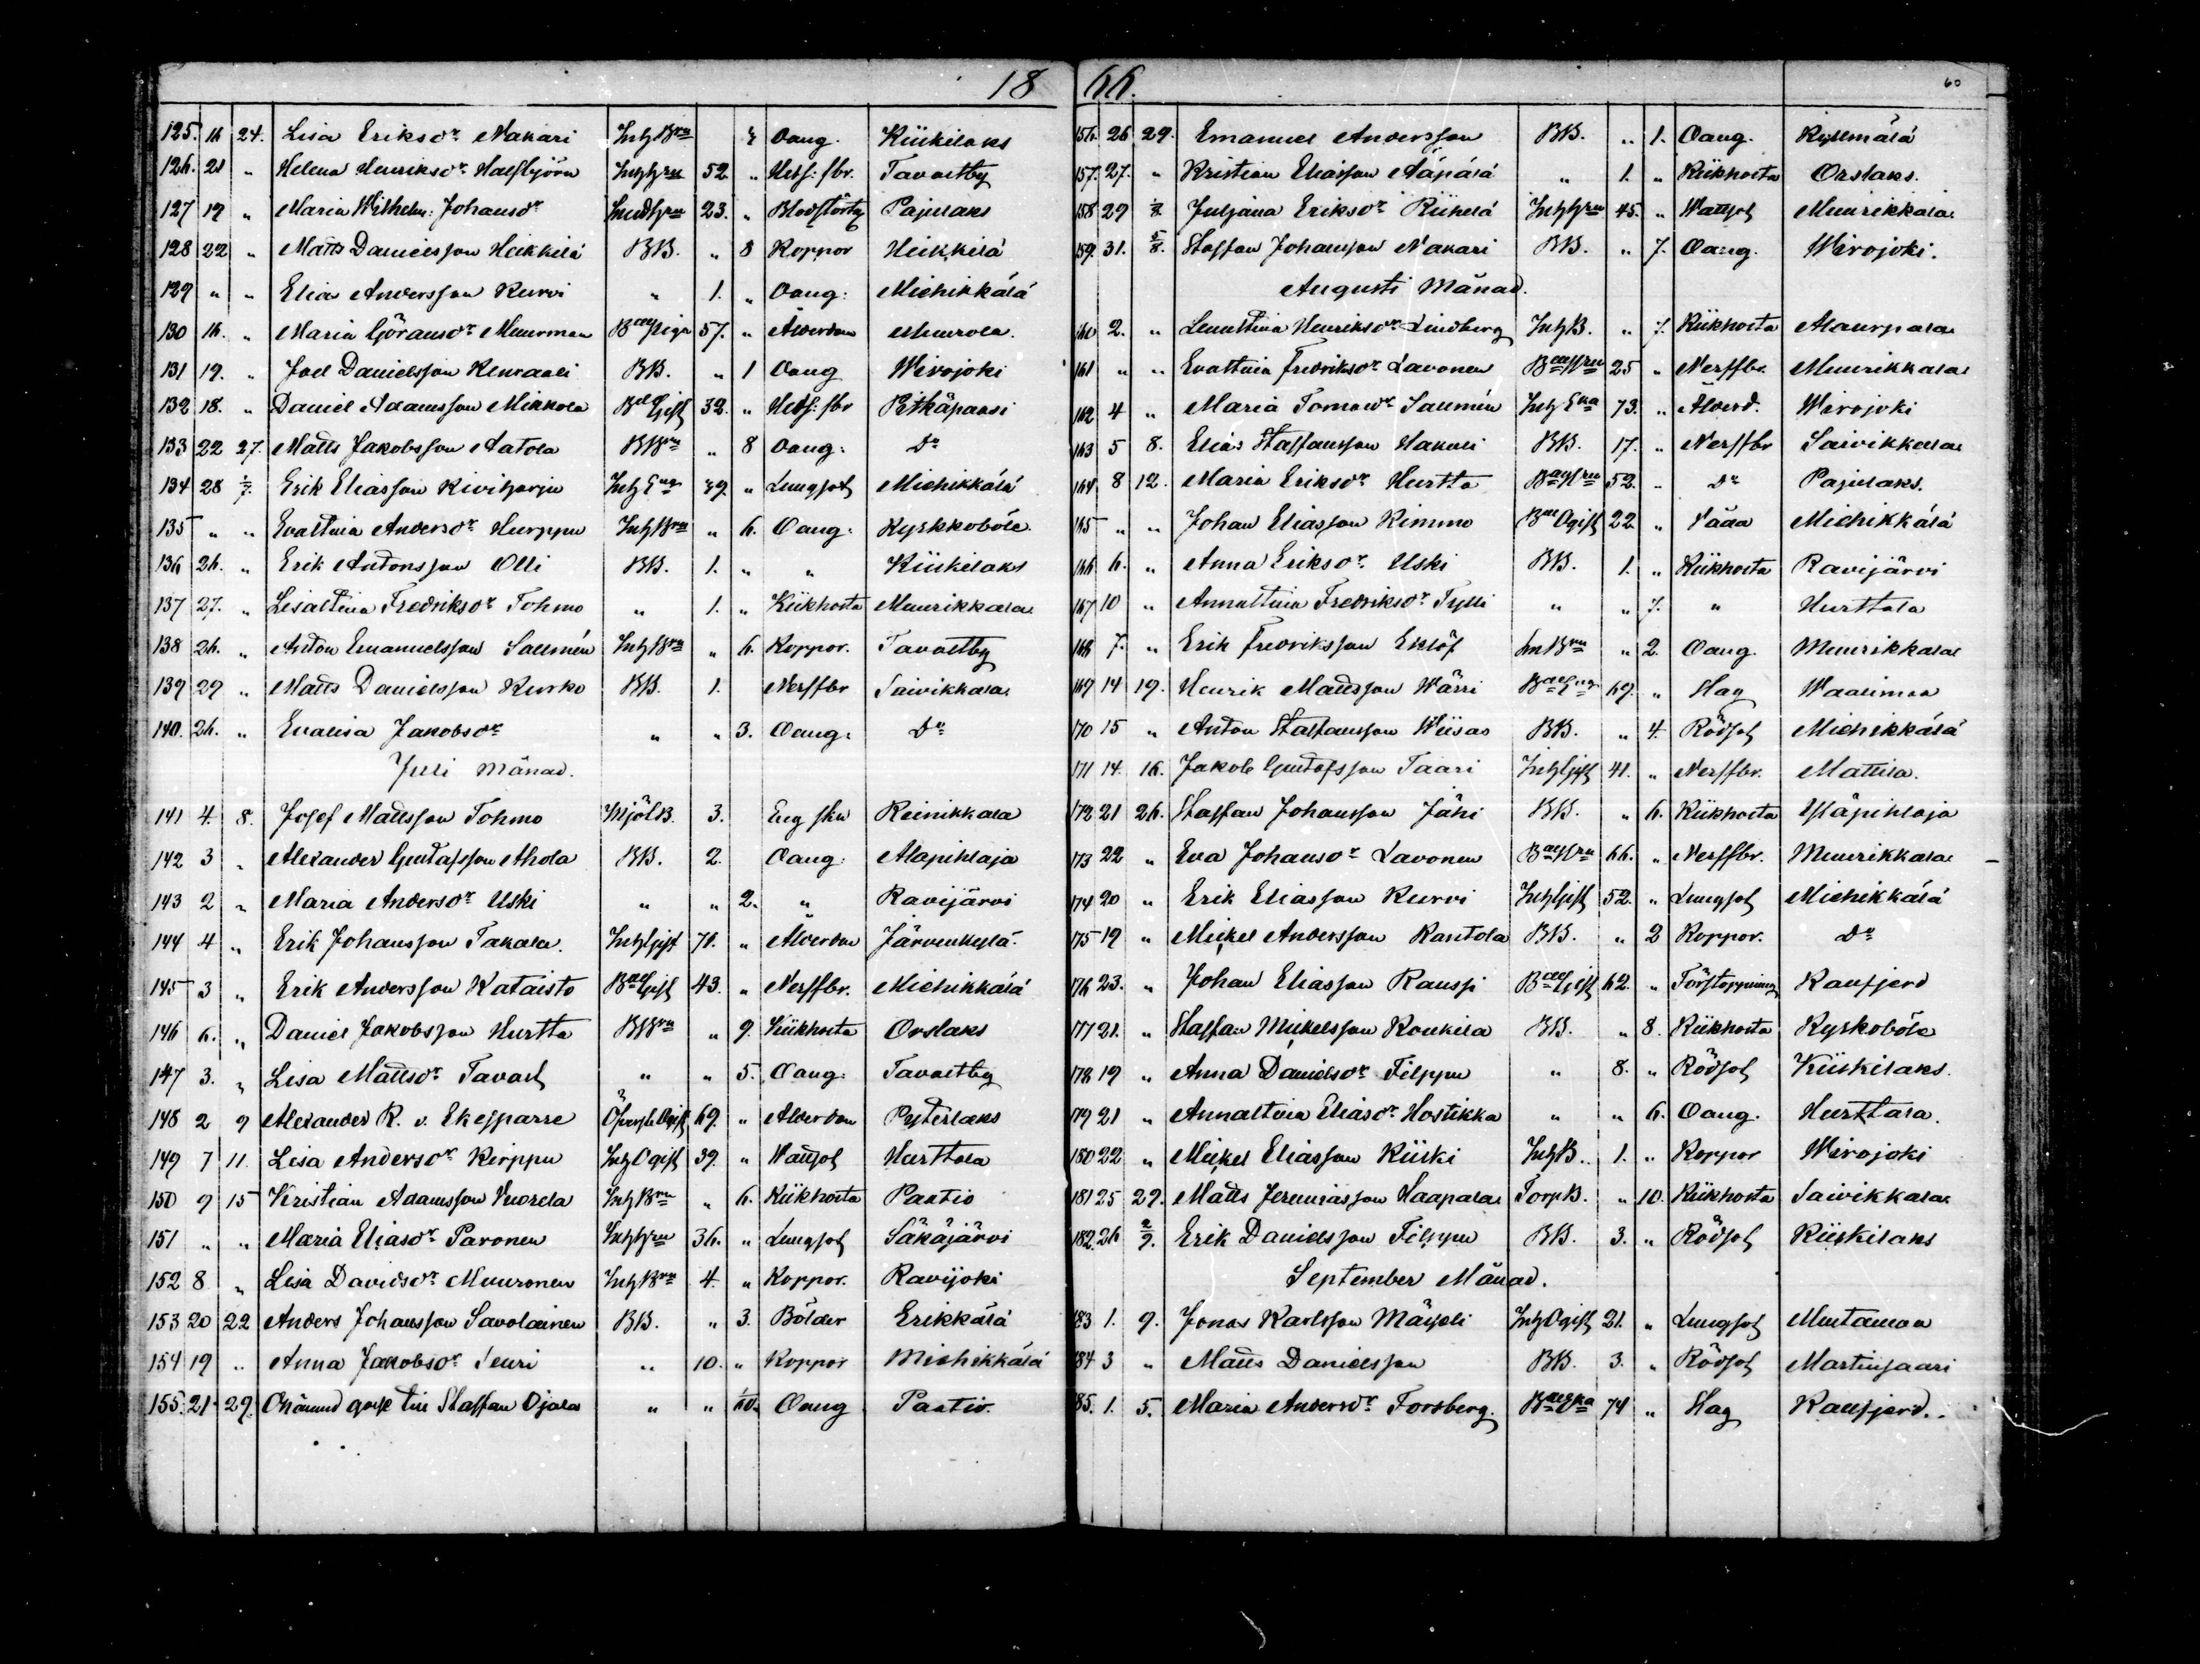 18 66. 60
125. 16 24. Lisa Eriksdr Nakari Inh Bru Oang. Kiiskilaks
126. 21 " Helena Henriksdr Hallbjörn Inh Hru 52. " Tavastby
127 19 " Maria Wilhelm: Johansdr 23. " Blodstörtg Pajulaks
128 22 " Matts Danielsson Heikkilä BB. " 8 Koppor Heikkilä
129 " " Elia Andersson Kurvi " 1. " Oang: Miehikkälä
130 16. " Maria Göransdr Muurman 57. " Ålderdom Muurola.
131 19. " Joel Danielsson Kenraali BB. " 1 Oang Wirojoki
132 18. " Daniel Adamsson Mikkola 32. " Pitkäpaasi
133 22 27. Matts Jakobsson Aatola BBru " 8 Oang: Do
134 28 1/7. Erik Eliasson Kiviharju 39. " Lungsot Miehikkälä
135 " " Evastina Andersdr Hurppu Inh Bru " 6. Oang: Kyrkkoböle
136 26. " Erik Antonsson Olli BB. 1. " " Kiiskilaks
137 27. " Lisastina Fredriksdr Tohmo " 1. " Kikhosta Muurikkala
138 26. " Anton Emanuelsson Sallmén Inh Bru " 6. Koppor. Tavastby
139 29 " Matts Danielsson Kurko BB. 1. Nerffbr Saivikkala
140. 26. " Evalisa Jakobsdr " " 3. Oang: Do
Juli Månad.
141 4. 8. Josef Mattsson Tohmo 3. Reinikkala
142 3 " Alexander Gustafsson Ahola BB. 2. Oang: Alapihlaja
143 2 " Maria Andersdr Uski " " 2. " Ravijärvi
144 4 " Erik Johansson Takala. Inh Gift 71. " Ålderdom Järvenkylä.
145 3 " Erik Andersson Kataisto 43. " Nerffbr. Miehikkälä
146 6. " Daniel Jakobsson Hurtta BBru " 9. Kikhosta Orslaks
147 3. " Lisa Mattsdr Tavast " " 5. Oang: Tavastby
148 2 9 Alexander R. v. Ekesparre 69. " Alderdom Pyterlaks
149 7 11. Lisa Andersdr Kirppu Inh Ogift 39. " Wattsot Hurttala
150 9 15 Kristian Adamsson Vuorela Inh Bru " 6. Kikhosta Paatio
151 " " Maria Eliasdr Paronen Inh Hru 36. " Lungsot Säkäjärvi
152 8 " Lisa Davidsdr Muuronen Inh Bru 4. " Koppor. Ravijoki
153 20 22 Anders Johansson Savolainen BB. " 3. Bölder Erikkälä
154 19 " Anna Jakobsdr Seuri " 10. " Koppor Miehikkälä
155. 21 29. Onämnd gosse till Staffan Ojala " " 1/10. Oang Paatio.
156. 26 29. Emanuel Andersson BB. " 1. Oang. Kyllmälä
157. 27. " Kristian Eliasson Aäpälä " 1. " Kikhosta Orslaks.
158 29 Juljana Eriksdr Riihelä Inh Hru 45. " Wattsot Muurikkala
159. 31. 5/8. Staffan Johansson Nakari BB. " 7. Oang. Wirojoki.
Augusti Månad.
160 2. " Lenastina Henriksdr Lindberg Inh B. " 7. Kikhosta Alaurpala
161 " " Evastina Fredriksdr Lavonen 25 " Nerffbr. Muurikkala
162 4 " Maria Tomasdr Saumén 73. " Ålderd. Wirojoki
163 5 8. Elias Staffansson Hakuli BB. 17. " Nerffbr Saivikkala
164 8 12. Maria Eriksdr Hurtta 52. " Do Pajulaks.
165 " " Johan Eliasson Kimmo 22. " Våda Miehikkälä
166 6. " Anna Eriksdr Uski BB. 1. " Kikhosta Ravijärvi
167 10 " Annastina Fredriksdr Tylli " " 7. " Hurttala
168 7. " Erik Fredriksson Eklöf " 2. Oang. Muurikkala
169 14 19. Henrik Mattsson Wärri 69. " Slag Waalimaa
170 15 " Anton Staffansson Wiisas BB. " 4. Rödsot Miehikkälä
171 14. 16. Jakob Gustafsson Taari Inh Gift 41. " Nerffbr. Mattila.
172 21 26. Staffan Johansson Jähi BB. " 6. Kikhosta Yläpihlaja
173 22 " Eva Johansdr Lavonen 66. " Nerffbr. Muurikkala
174 20 " Erik Eliasson Kurvi Inh Gift 52. " Lungsot Miehikkälä
175 19 " Mickel Andersson Kantola BB. " 2 Koppor. Do
176 23. " Johan Eliasson Raussi 62. " Förstoppning Kausjerd
177 21. " Staffan Mickelsson Koukila BB. " 8. Kikhosta Kyrkoböle
178 19 " Anna Danielsdr Filppu " 8. " Rödsot Kiiskilaks.
179 21 " Annastina Eliasdr Hostikka " " 6. Oang. Hurttala.
180 22 " Mickel Eliasson Kiiski Inh B. 1. " Koppor Wirojoki
181 25 29. Matts Jeremiasson Haapala Torp B. " 10. Kikhosta Saivikkala
182. 26 2/9. Erik Danielsson Filppu BB. 3. " Rödsot Kiiskilaks
September Månad.
183 1. 9. Jonas Karlsson Mäyoli Inh Ogift 21. " Lungsot Muntamaa
184 3 " Matts Danielsson BB. 3. " Rödsot Martinsaari
185. 1. 5. Maria Andersdr Forsberg. 74 " Slag Kausjerd.